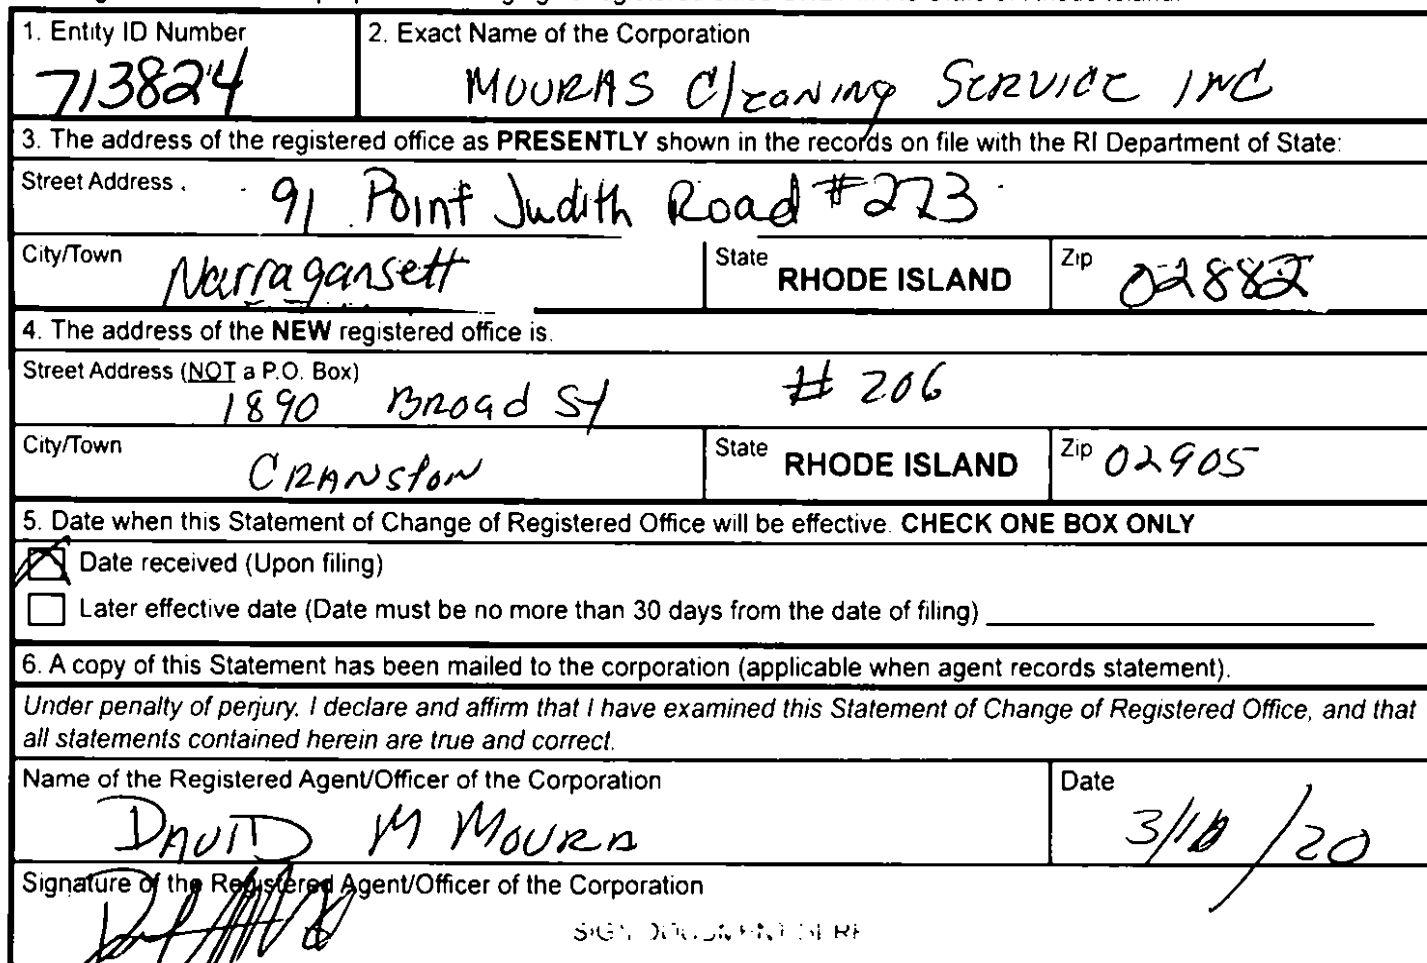 1. Entity ID Number
713824
2. Exact Name of the Corporation
MOURAS Cleaning SERVICE INC
3. The address of the registered office as PRESENTLY shown in the records on file with the RI Department of State:
Street Address
91 Point Judith Road #273
City/Town
Narragansett
State RHODE ISLAND
Zip 02882
4. The address of the NEW registered office is.
Street Address (NOT a P.O. Box)
1890 Broad St # 206
City/Town
CRANSTON
State RHODE ISLAND
Zip 02905
5. Date when this Statement of Change of Registered Office will be effective. CHECK ONE BOX ONLY
Date received (Upon filing)
Later effective date (Date must be no more than 30 days from the date of filing)
6. A copy of this Statement has been mailed to the corporation (applicable when agent records statement).
Under penalty of perjury. I declare and affirm that I have examined this Statement of Change of Registered Office, and that
all statements contained herein are true and correct.
Name of the Registered Agent/Officer of the Corporation
DAVID M MOURA
Date
Signature of the Registered Agent/Officer of the Corporation
SIGN DOCUMENT HERE